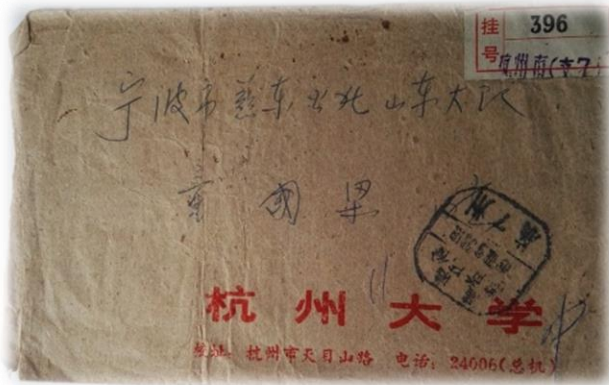 挂号 396
杭州市(支7)
宁波市慈东公社山东大队
童 国 梁
杭州大学
地址: 杭州市天目山路 电话: 24006(总机)